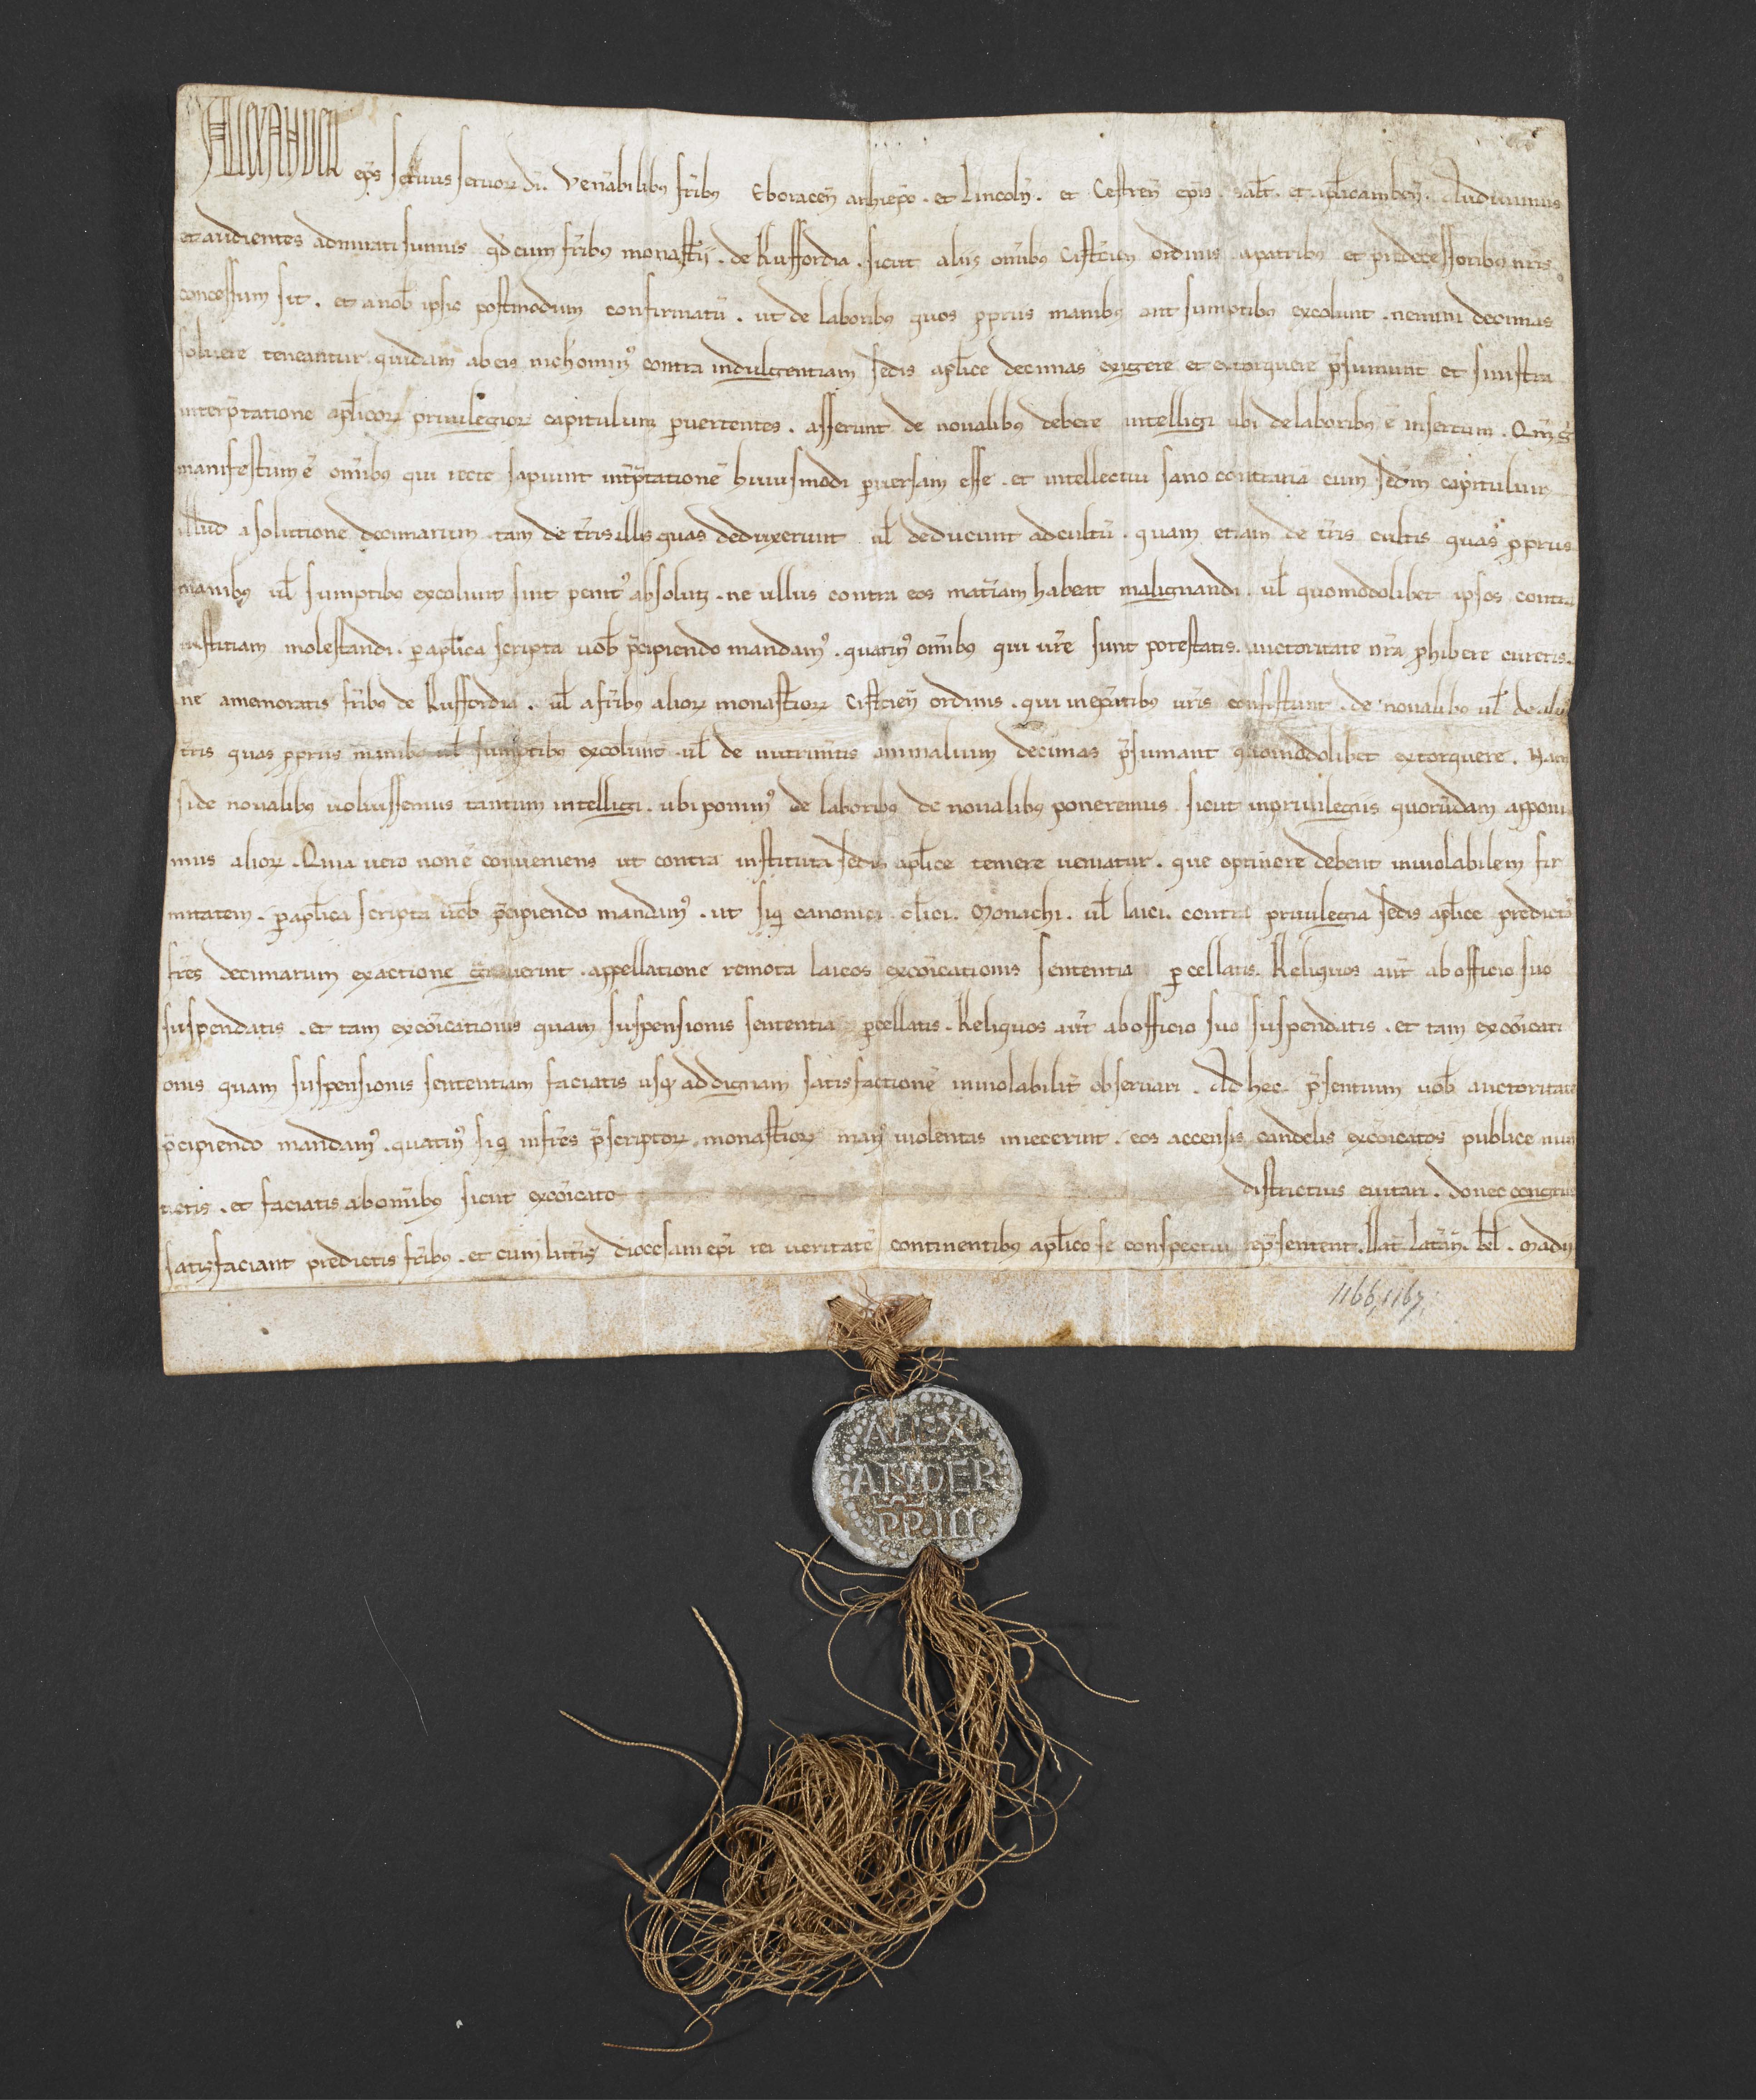 ALEXANDER ep̄s seruus seruoꝝ dī. Venabilibꝰ fr̄ibꝰ Eboraceñ archiep̄o . et Lincolñ . et Cestreñ ep̄is . saƚt . et apƚicam beñ . Audiuimus
et audientes admirati sumus qd̄ cum fr̄ibꝰ monasTii . de Ruffordia . sicut aliis om̄ibꝰ Cisterciñ ordinis apatribꝰ et predecessoribꝰ nr̄is
concessum sit . et a nob̄ ipsis postmodum confirmatū . ut de laboribꝰ quos ꝓpriis manibꝰ aut sumptibꝰ excolunt . nemini decimas
soluere teneantur quidam ab eis nichominꝰ contra indulgentiam sedis apƚice decimas exigere et extorquere p̄sumunt et sinistra
interp̄tatione apƚicoꝝ priuilegioꝝ capitulum ꝑuertentes . asserunt de noualibꝰ debere intelligi ubi de laboribꝰ ē insertum . Qm̄ g̊
manifestum ē om̄ibꝰ qui recte sapiunt int̄p̄tationē huiusmodi ꝑuersam esse . et intellectui sano contrariā cum sc̄dm capitulum
illud a solutione decimarum tam de t̄ris illis quas deduxerunt uƚ deducunt ad cultū . quam etiam de t̄ris cultis quas ꝓpriis
manibꝰ uƚ sumptibꝰ excolunt sint penitꝰ absoluti . ne ullus contra eos mat̄iam habeat malignandi . uƚ quomodolibet ipsos contra
iustitiam molestandi . ꝑ apƚica scripta uob̄ p̄cipiendo mandamꝰ . quatinꝰ om̄ibꝰ qui ur̄e sunt potestatis . auctoritate nr̄a ꝓhibere curetis .
ne amemoratis fr̄ibꝰ de Ruffordia . uƚ a fr̄ibꝰ alioꝝ monast̄ioꝝ Cistercieñ ordinis . qui in ep̄atibꝰ ur̄is consistunt . de noualibꝰ uƚ de aliis
t̄ris quas ꝓpriis manibꝰ uƚ sumptibꝰ excolunt . uƚ de nutrim̄tis animalium decimas p̄sumant quomodolibet extorquere . Nam
si de noualibꝰ uoluissemus tantum intelligi . ubi ponimꝰ de laboribꝰ de noualibꝰ poneremus sicut in priuilegiis quorūdam apponi
mus alioꝝ . Quia uero non ē conueniens ut contra instituta sedis apƚice temere ueniatur . que optinere debent inuiolabilem fir
mitatem . ꝑ apƚica scripta uob̄ p̄cipiendo mandamꝰ . ut siq̄ canonici . cƚici . Monachi . uƚ laici . contra priuilegia sedis apƚice predictos
fr̄es decimarum exactione grauerint . appellatione remota laicos exco̅icationis sententia ꝑcellatis . Reliquos aūt ab officio suo
suspendatis . et tam exco̅icationis quam suspensionis sententia ꝑcellatis . Reliquos aūt ab officio suo suspendatis . et tam exco̅icati
onis quam suspensionis sententiam faciatis usq̧ ad dignam satisfactionē inuiolabilit̄ obseruari . Ad hec p̄sentium uob̄ auctoritate
p̄cipiendo mandamꝰ . quatinꝰ siq̄ in fr̄es p̄scriptoꝝ monast̄ioꝝ manꝰ uiolentas iniecerint . eos accensis candelis exco̅icatos publice nun
tietis . et faciatis ab om̄ibꝰ sicut exco̅icato districtius euitari . donec congrue
satisfaciant predictis fr̄ibꝰ . et cum litt̄is diocesani ep̄i rei ueritatē continentibꝰ apƚico se conspectui rep̄sentent . Dat̄ Lat̄añ . .
1166, 1167,
ALEX
ANDER
PP. III